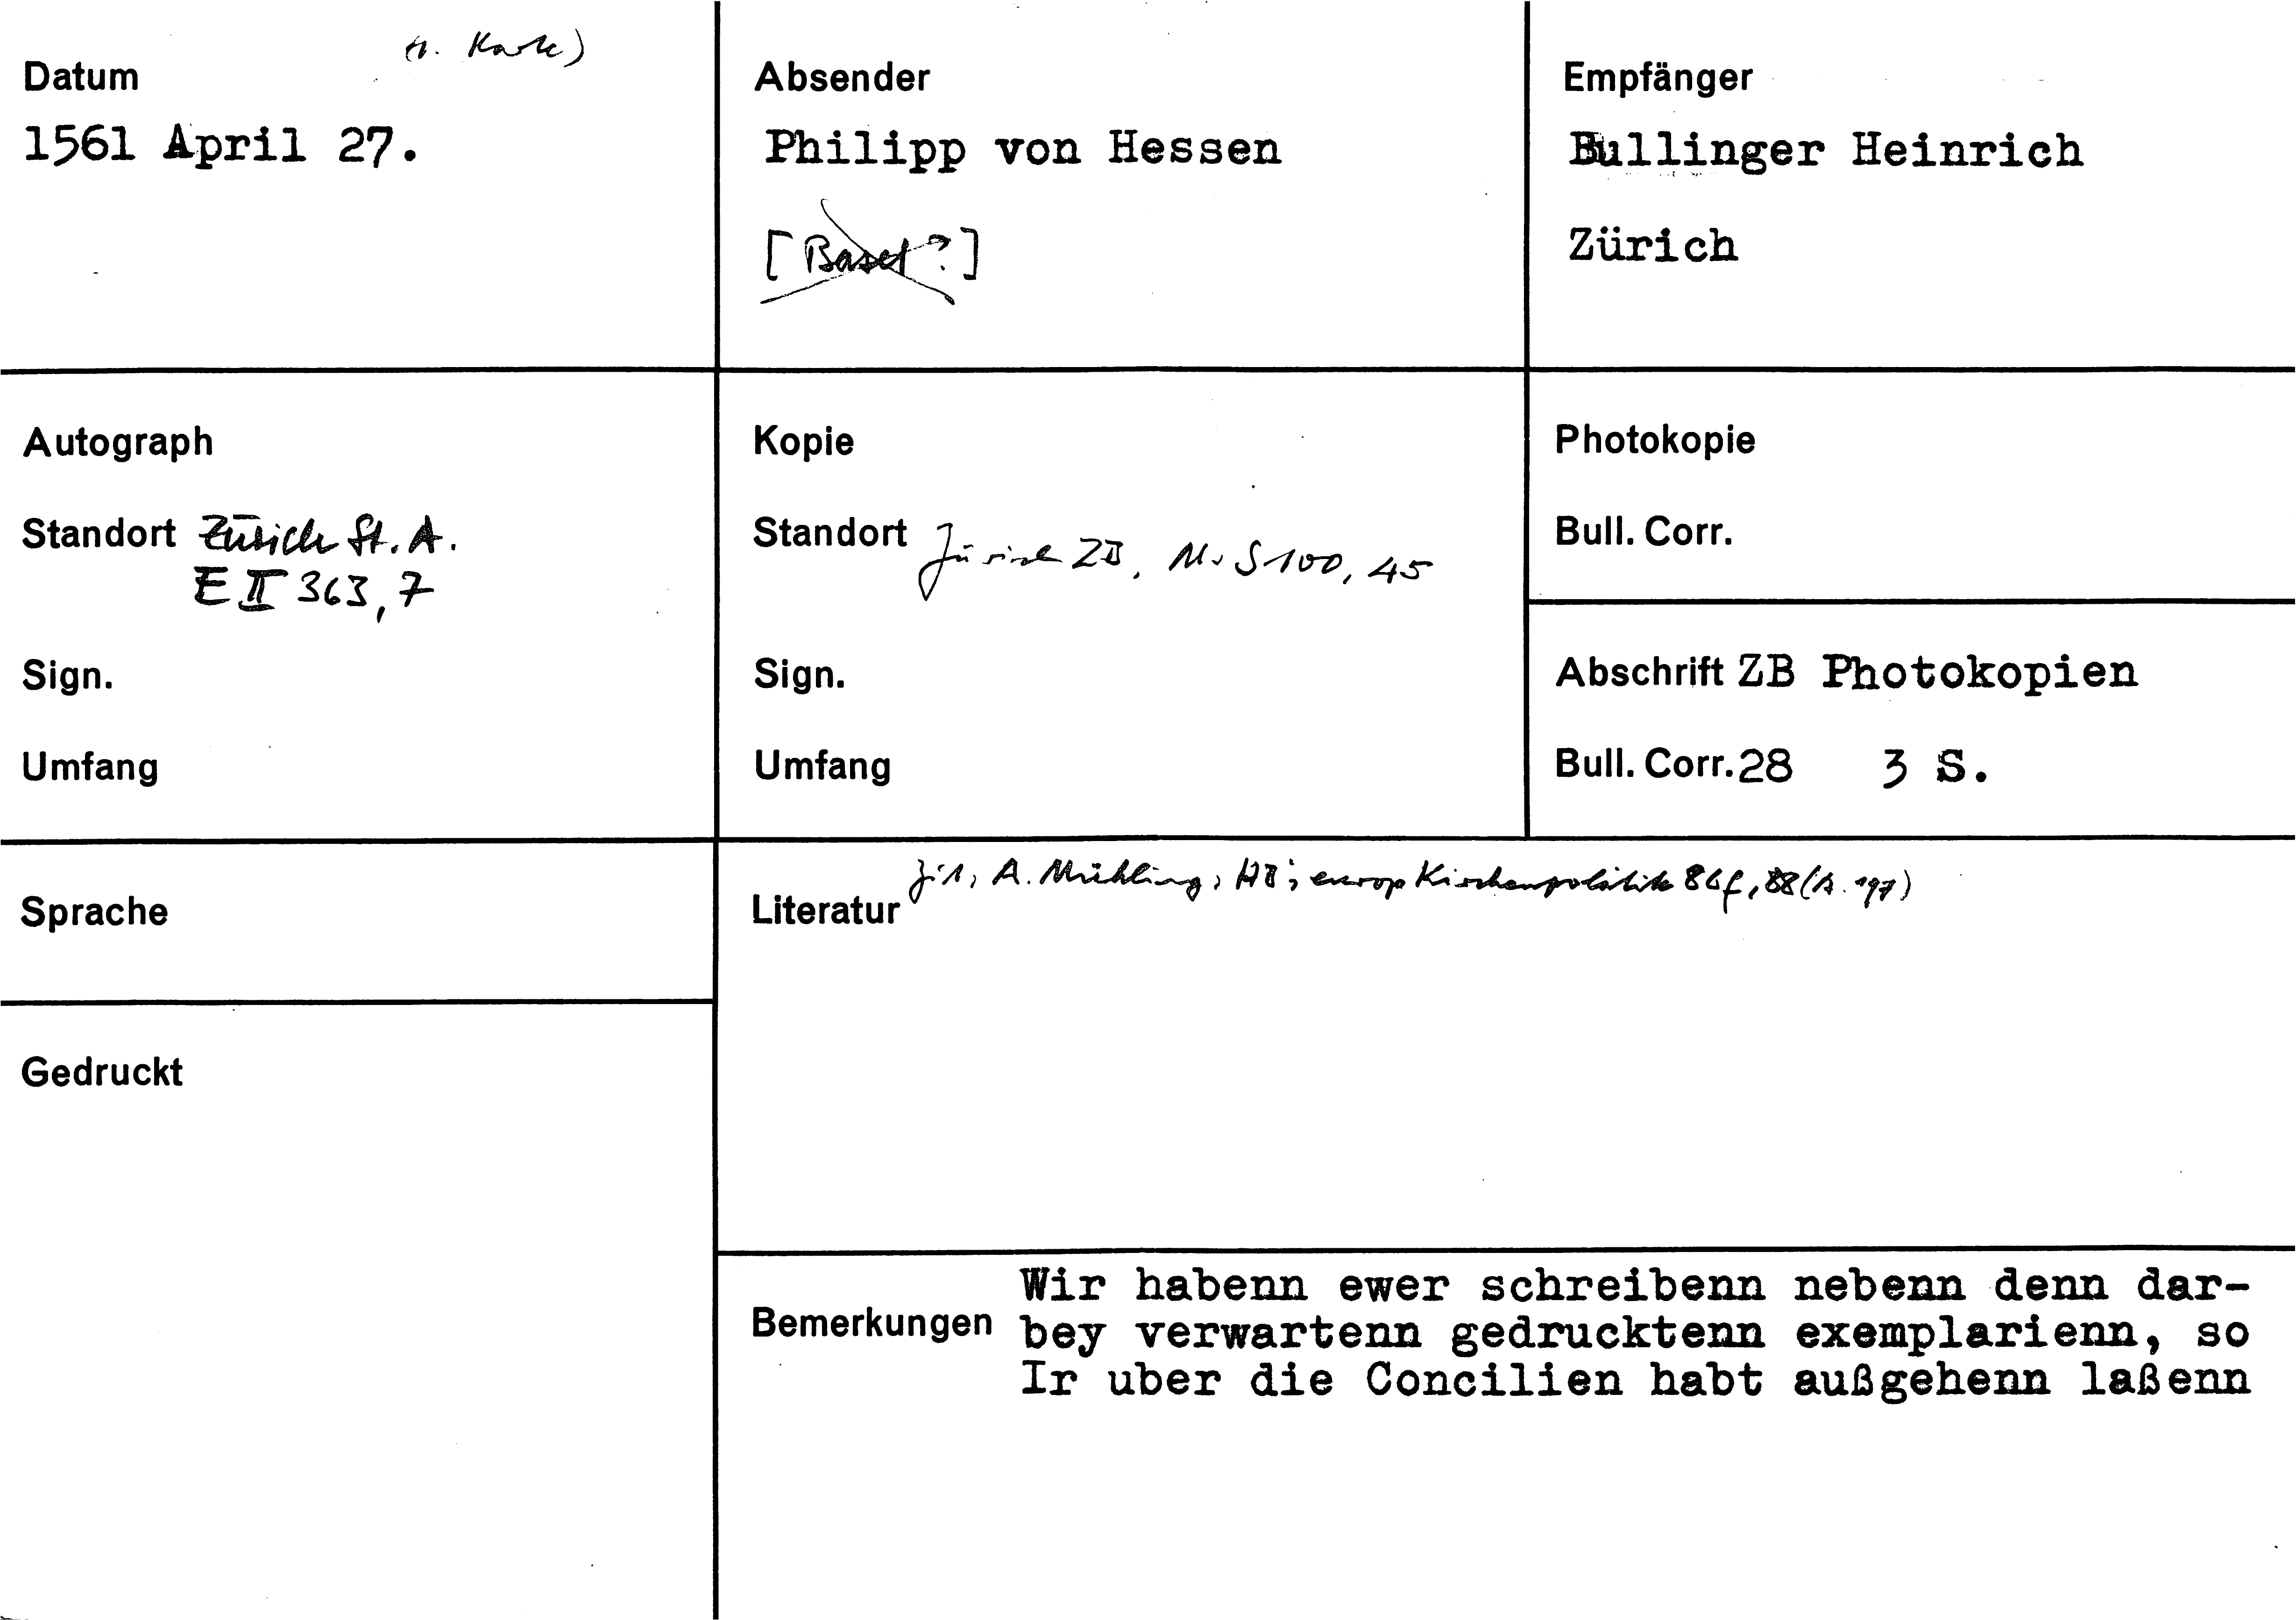 Datum
1561 April 27.
Absender
Philipp von Hessen
[Basel?]
Empfänger
Bullinger Heinrich
Zürich
Autograph
Standort Zürich St. A.
E II 363, 7
Sign.
Umfang
Kopie
Standort Zürich ZB, Ms S 100, 45
Sign.
Umfang
Photokopie
Bull. Corr.
Abschrift ZB Photokopien
Bull. Corr. 28 3 S.
Sprache
Gedruckt
Literatur A. Mühling, HBs europ Kirchenpolitik 86f, 88 (A. 197)
Bemerkungen
Wir habenn ewer schreibenn nebenn denn dar-
bey verwartenn gedrucktenn exemplarienn, so
Ir uber die Concilien habt außgehenn laßenn